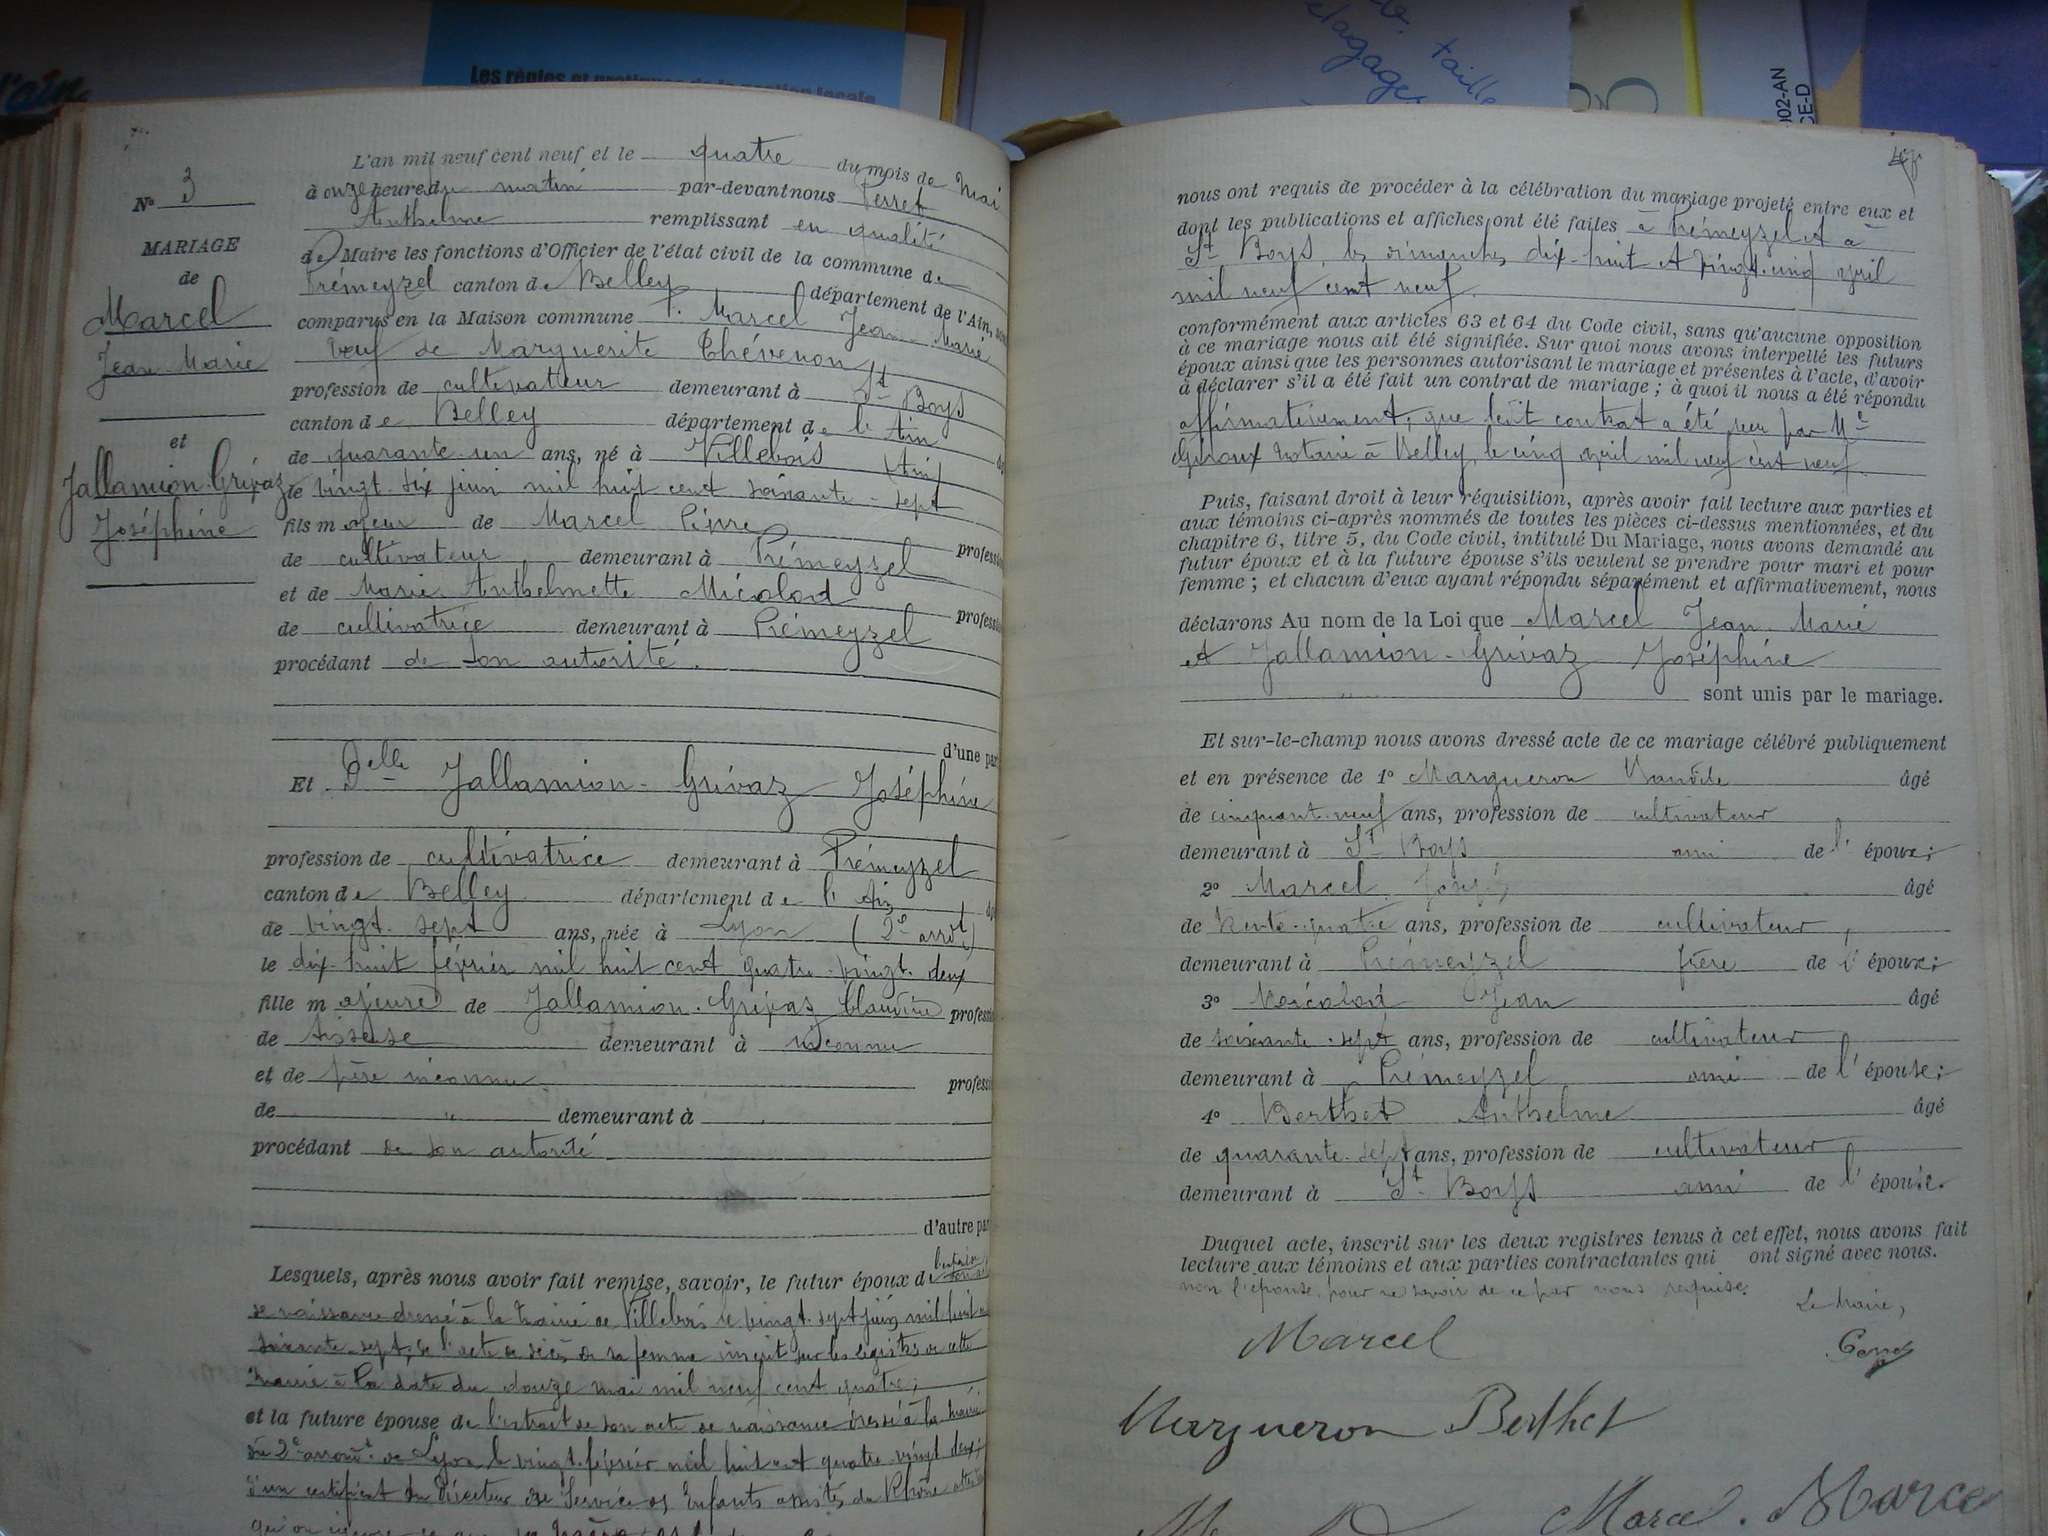 l'ain
Les règles et pratiques de la gestion locale
taille
elagage
002-AN
CE-D
N° 3
MARIAGE
de
Marcel
Jean-Marie
et
Jallamion-Grivaz
Joséphine
L'an mil neuf cent neuf et le quatre du mois de Mai
à onze heure du matin par-devant nous Perret
Anthelme remplissant en qualité
de Maire les fonctions d'Officier de l'état civil de la commune de
Prémeyzel canton de Belley département de l'Ain, sont
comparus en la Maison commune 1. Marcel Jean-Marie
veuf de Marguerite Thévenon
profession de cultivateur demeurant à St Boys
canton de Belley département de l'Ain
de quarante-un ans, né à Villebois (Ain)
le vingt-six juin mil huit cent soixante-sept
fils majeur de Marcel Pierre
profession
de cultivateur demeurant à Prémeyzel
et de Marie Anthelmette Micolod
profession
de cultivatrice demeurant à Prémeyzel
procédant de son autorité.
d'une part
Et Delle Jallamion-Grivaz Joséphine
profession de cultivatrice demeurant à Prémeyzel
canton de Belley département de l'Ain
de vingt-sept ans, née à Lyon (2e arrot)
le dix-huit février mil huit cent quatre-vingt-deux
fille majeure de Jallamion-Grivaz Claudine profession
de tisseuse demeurant à inconnu
et de père inconnu profession
de " demeurant à
procédant de son autorité
d'autre part
Lesquels, après nous avoir fait remise, savoir, le futur époux de l'extrait
de naissance dressé à la mairie de Villebois le vingt-sept juin mil huit cent
soixante-sept; de l'acte de décès de sa femme inscrit sur les registres de cette
mairie à la date du douze mai mil neuf cent quatre;
et la future épouse de l'extrait de son acte de naissance dressé à la mairie
du 2e arrondt de Lyon le vingt février mil huit cent quatre-vingt-deux;
d'un certificat du Directeur du Service des Enfants assistés du Rhône
nous ont requis de procéder à la célébration du mariage projeté entre eux et
dont les publications et affiches ont été faites à Prémeyzel et à
St Boys, les dimanches dix-huit et vingt-cinq avril
mil neuf cent neuf.
conformément aux articles 63 et 64 du Code civil, sans qu'aucune opposition
à ce mariage nous ait été signifiée. Sur quoi nous avons interpellé les futurs
époux ainsi que les personnes autorisant le mariage et présentes à l'acte, d'avoir
à déclarer s'il a été fait un contrat de mariage; à quoi il nous a été répondu
affirmativement, que ledit contrat a été reçu par Me
Giroux notaire à Belley, le cinq avril mil neuf cent neuf.
Puis, faisant droit à leur réquisition, après avoir fait lecture aux parties et
aux témoins ci-après nommés de toutes les pièces ci-dessus mentionnées, et du
chapitre 6, titre 5, du Code civil, intitulé Du Mariage, nous avons demandé au
futur époux et à la future épouse s'ils veulent se prendre pour mari et pour
femme; et chacun d'eux ayant répondu séparément et affirmativement, nous
déclarons Au nom de la Loi que Marcel Jean-Marie
et Jallamion-Grivaz Joséphine
" sont unis par le mariage.
Et sur-le-champ nous avons dressé acte de ce mariage célébré publiquement
et en présence de 1° Margueron âgé
de cinquante-neuf ans, profession de cultivateur
demeurant à St Boys ami de l'époux;
2° Marcel Joseph âgé
de trente-quatre ans, profession de cultivateur,
demeurant à Prémeyzel frère de l'époux;
3° Micolod Jean âgé
de soixante-sept ans, profession de cultivateur
demeurant à Prémeyzel ami de l'épouse;
4° Berthet Anthelme âgé
de quarante-sept ans, profession de cultivateur
demeurant à St Boys ami de l'épouse.
Duquel acte, inscrit sur les deux registres tenus à cet effet, nous avons fait
lecture aux témoins et aux parties contractantes qui ont signé avec nous.
non l'épouse pour ne savoir de ce par nous requise.
Le Maire,
Marcel
Perret
Margueron Berthet
Marcel. Marcel